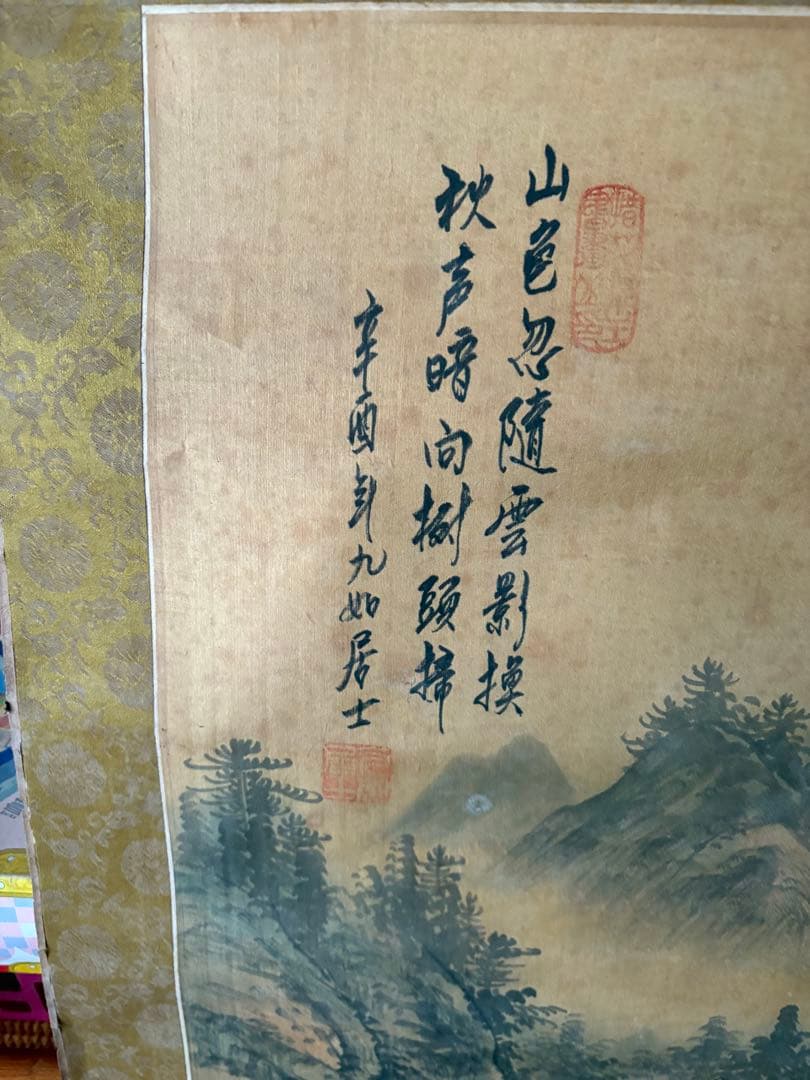 山色忽隨雲影換
秋声暗向樹頭掃
辛酉年九如居士